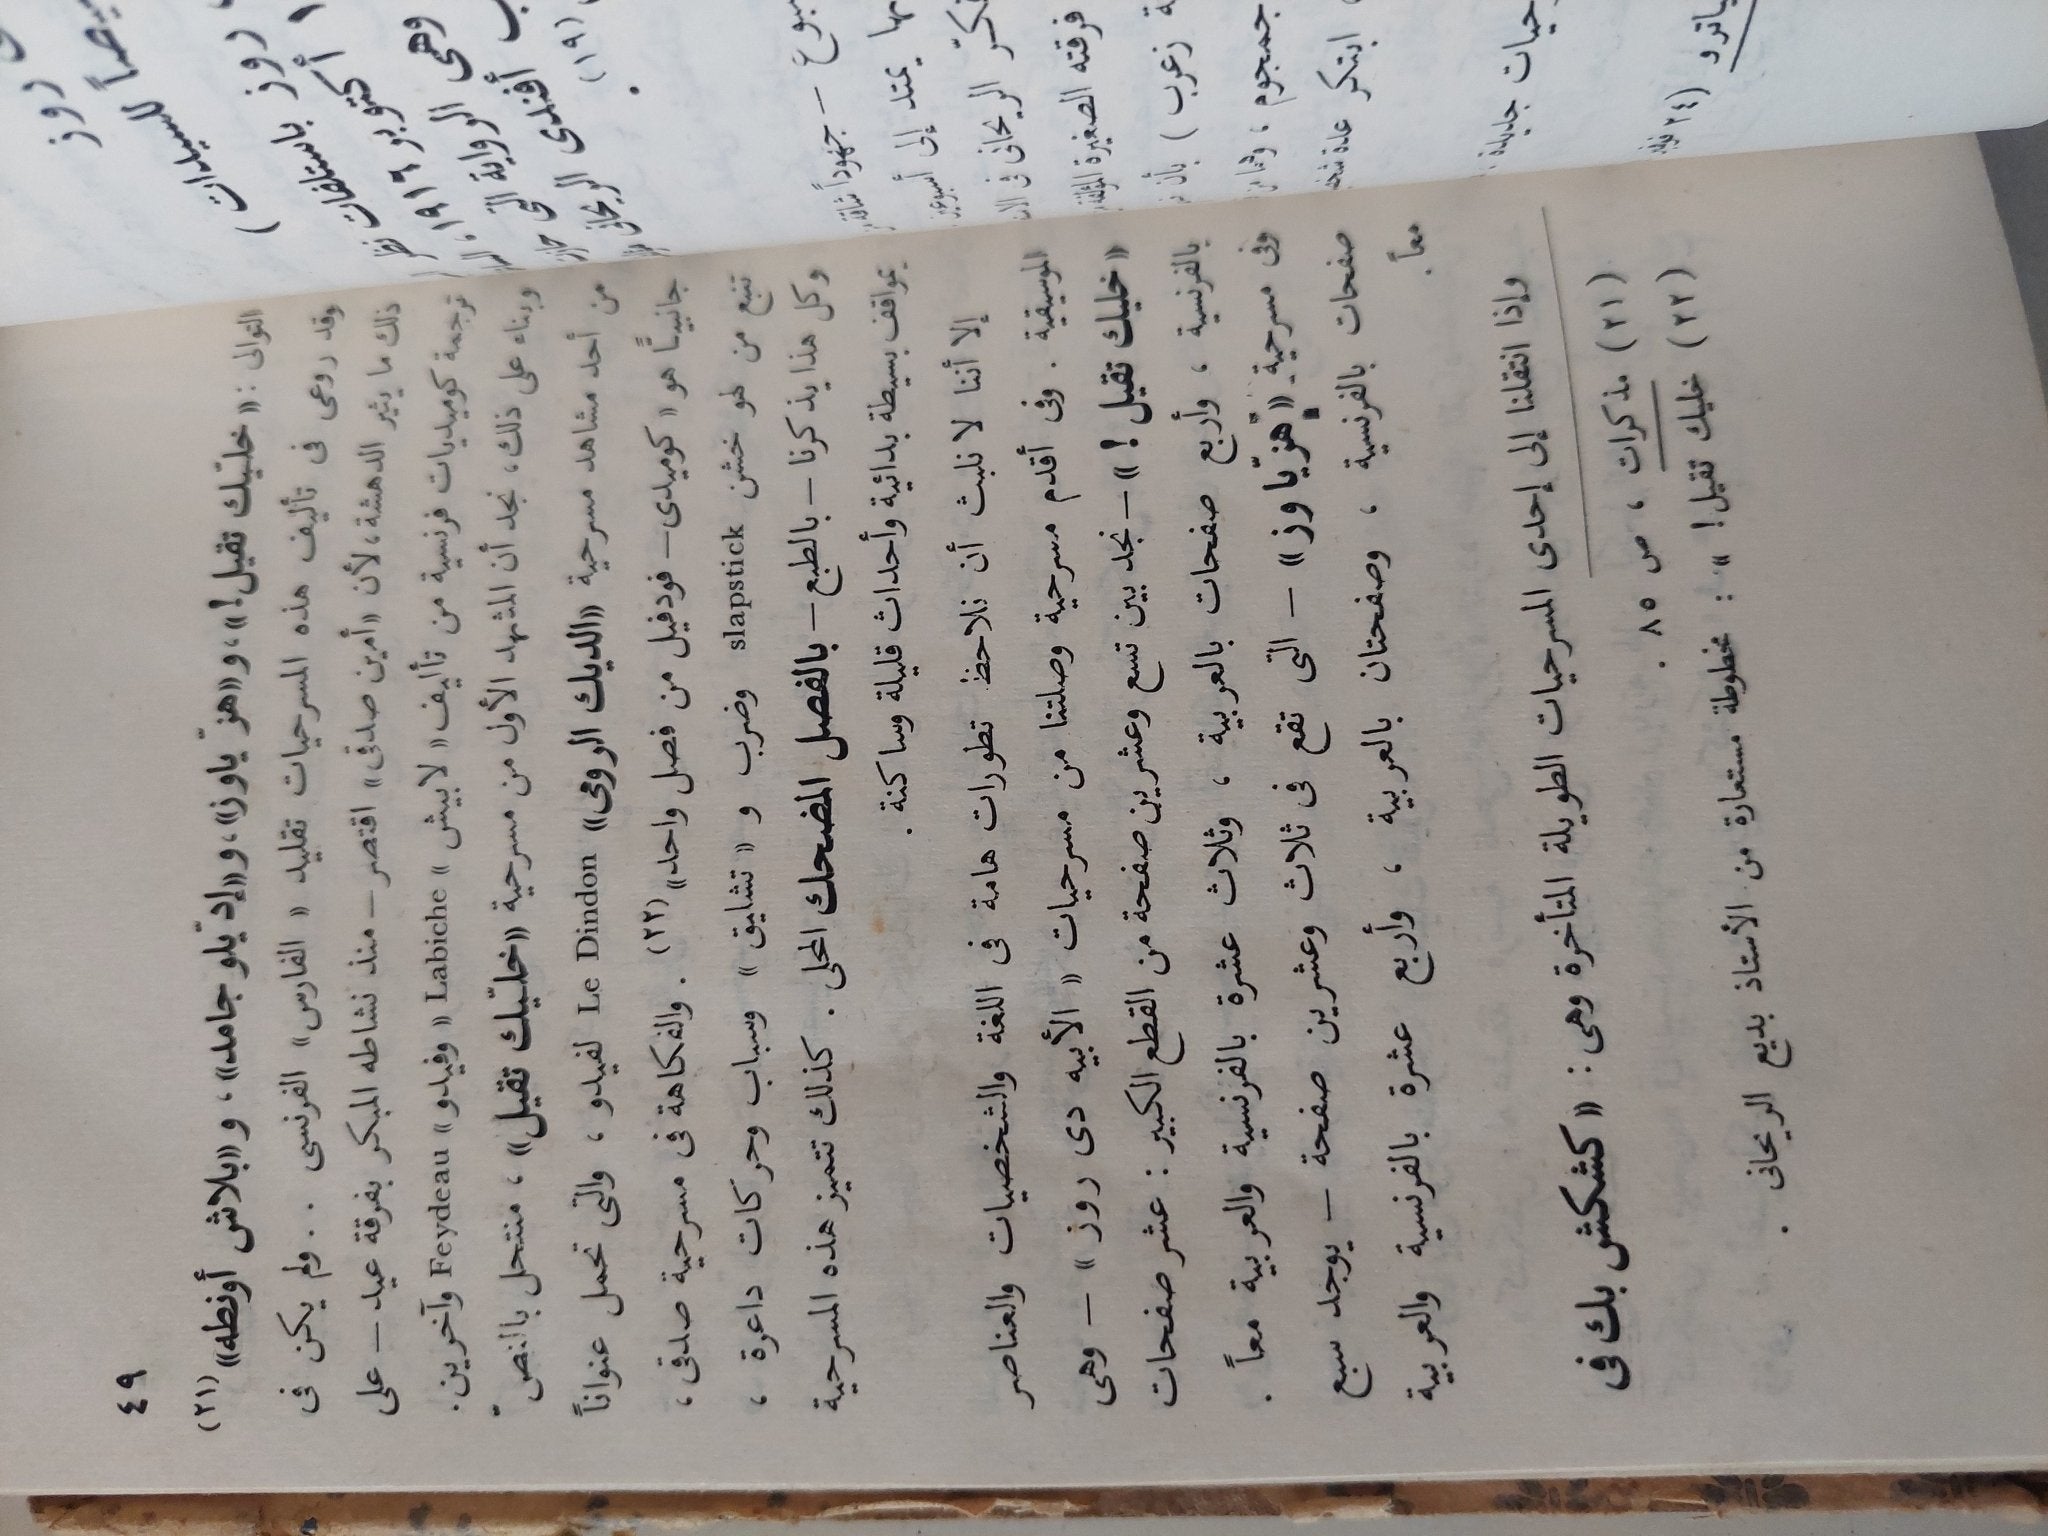 ٤٩
التوالى : «خليّك تقيل!»، و«هزّ ياوز»، و«إدّيلو جامد»، و«بلاش أونطه» (٢١)
وقد روعى فى تأليف هذه المسرحيات تقليد « الفارس » الفرنسى . . ولم يكن فى
ذلك ما يثير الدهشة، لأن «أمين صدقى» اقتصر – منذ نشاطه المبكر بفرقة عيد – على
ترجمة كوميديات فرنسية من تأليف « لابيش » Labiche « وفيدو » Feydeau وآخرين.
وبناء على ذلك، نجد أن المشهد الأول من مسرحية «خليّك تقيل» ، منتحل بالنصّ
من أحد مشاهد مسرحية «الديك الرومى» Le Dindon لفيدو ، والتى تحمل عنواناً
جانبيًّا هو « كوميدى – فودفيل من فصل واحد» (٢٢) . والفكاهة فى مسرحية صدقى ،
تنبع من لهو خشن slapstick وضرب و « تشليق » وسباب وحركات داعرة ،
وكل هذا يذكرنا – بالطبع – بالفصل المضحك المحلى . كذلك تتميز هذه المسرحية
بمواقف بسيطة بدائية وأحداث قليلة وساكنة .
إلا أننا لا نلبث أن نلاحظ تطورات هامة فى اللغة والشخصيات والعناصر
الموسيقية . وفى أقدم مسرحية وصلتنا من مسرحيات « الأبيه دى روز » – وهى
«خليك تقيل !» – نجد بين تسع وعشرين صفحة من القطع الكبير : عشر صفحات
بالفرنسية ، وأربع صفحات بالعربية ، وثلاث عشرة بالفرنسية والعربية معاً .
وفى مسرحية «هزّ ياوز» – التى تقع فى ثلاث وعشرين صفحة – يوجد سبع
صفحات بالفرنسية ، وصفحتان بالعربية ، وأربع عشرة بالفرنسية والعربية
معاً.
وإذا انتقلنا إلى إحدى المسرحيات الطويلة المتأخرة وهى : «كشكش بك فى
(٢١) مذكرات ، ص ٨٥ .
(٢٢) خليك تقيل! » : مخطوطة مستعارة من الأستاذ بديع الريحانى .
روز
للسيدات )
روز باستلفات نظر
أكتوبر ١٩١٦،
وهى الرواية التى
أفندى الريحانى
(١٩) .
– جهوداً
يمتد إلى
الريحانى فى
فرقته الصغيرة
زعرب ) بأن
جمجوم ،
ابتكر عدة
جديدة
(٢٤